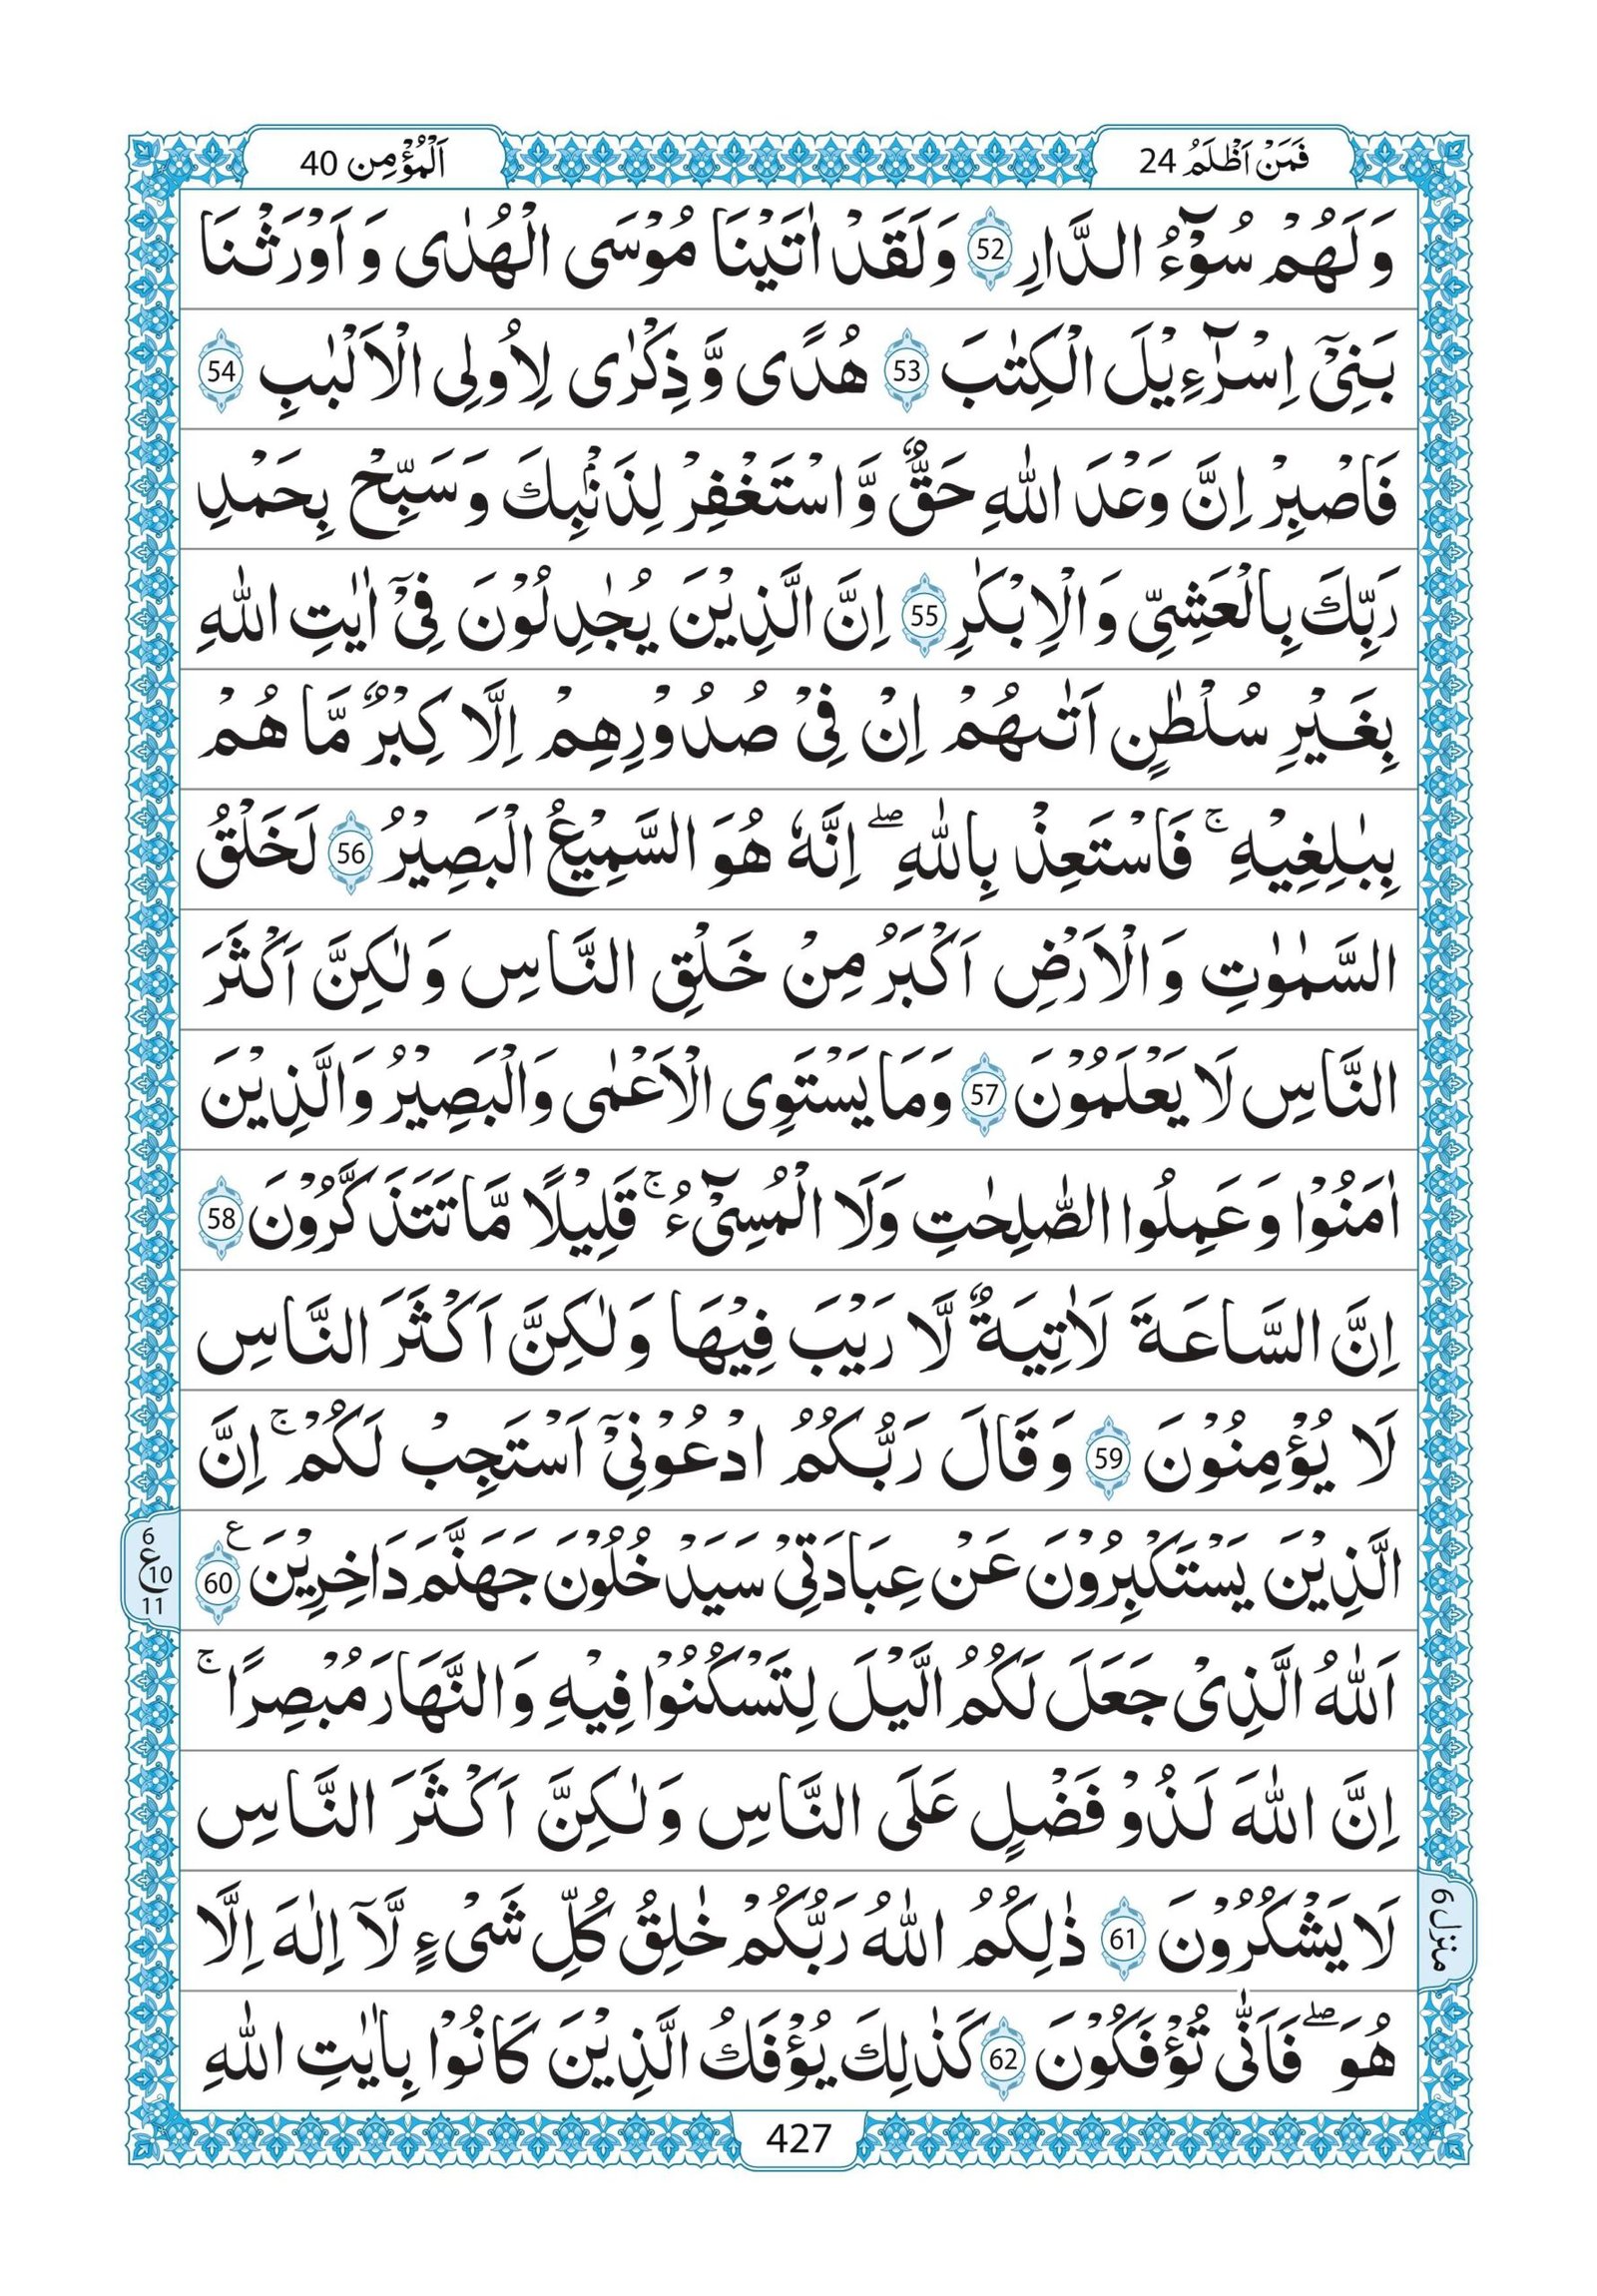 فَمَنْ اَظْلَمُ 24
اَلْمُؤْمِن 40
وَلَهُمْ سُوْٓءُ الدَّارِ 52 وَلَقَدْ اٰتَيْنَا مُوْسَى الْهُدٰى وَ اَوْرَثْنَا
بَنِيْٓ اِسْرَآءِيْلَ الْكِتٰبَ 53 هُدًى وَّ ذِكْرٰى لِاُولِى الْاَلْبٰبِ 54
فَاصْبِرْ اِنَّ وَعْدَ اللّٰهِ حَقٌّ وَّ اسْتَغْفِرْ لِذَنْۢبِكَ وَ سَبِّحْ بِحَمْدِ
رَبِّكَ بِالْعَشِيِّ وَ الْاِبْكٰرِ 55 اِنَّ الَّذِيْنَ يُجٰدِلُوْنَ فِيْٓ اٰيٰتِ اللّٰهِ
بِغَيْرِ سُلْطٰنٍ اَتٰىهُمْ اِنْ فِيْ صُدُوْرِهِمْ اِلَّا كِبْرٌ مَّا هُمْ
بِبٰلِغِيْهِ ۚ فَاسْتَعِذْ بِاللّٰهِ ۖ اِنَّهٗ هُوَ السَّمِيْعُ الْبَصِيْرُ 56 لَخَلْقُ
السَّمٰوٰتِ وَ الْاَرْضِ اَكْبَرُ مِنْ خَلْقِ النَّاسِ وَ لٰكِنَّ اَكْثَرَ
النَّاسِ لَا يَعْلَمُوْنَ 57 وَمَا يَسْتَوِى الْاَعْمٰى وَالْبَصِيْرُ وَالَّذِيْنَ
اٰمَنُوْا وَ عَمِلُوا الصّٰلِحٰتِ وَلَا الْمُسِيْٓءُ ۚ قَلِيْلًا مَّا تَتَذَكَّرُوْنَ 58
اِنَّ السَّاعَةَ لَاٰتِيَةٌ لَّا رَيْبَ فِيْهَا وَ لٰكِنَّ اَكْثَرَ النَّاسِ
لَا يُؤْمِنُوْنَ 59 وَ قَالَ رَبُّكُمُ ادْعُوْنِيْٓ اَسْتَجِبْ لَكُمْ ۚ اِنَّ
الَّذِيْنَ يَسْتَكْبِرُوْنَ عَنْ عِبَادَتِيْ سَيَدْخُلُوْنَ جَهَنَّمَ دَاخِرِيْنَ 60 ع
6
ع 10
11
اَللّٰهُ الَّذِيْ جَعَلَ لَكُمُ الَّيْلَ لِتَسْكُنُوْا فِيْهِ وَ النَّهَارَ مُبْصِرًا ۚ
اِنَّ اللّٰهَ لَذُوْ فَضْلٍ عَلَى النَّاسِ وَلٰكِنَّ اَكْثَرَ النَّاسِ
لَا يَشْكُرُوْنَ 61 ذٰلِكُمُ اللّٰهُ رَبُّكُمْ خٰلِقُ كُلِّ شَيْءٍ لَّآ اِلٰهَ اِلَّا
منزل 6
هُوَ ۖ فَاَنّٰى تُؤْفَكُوْنَ 62 كَذٰلِكَ يُؤْفَكُ الَّذِيْنَ كَانُوْا بِاٰيٰتِ اللّٰهِ
427